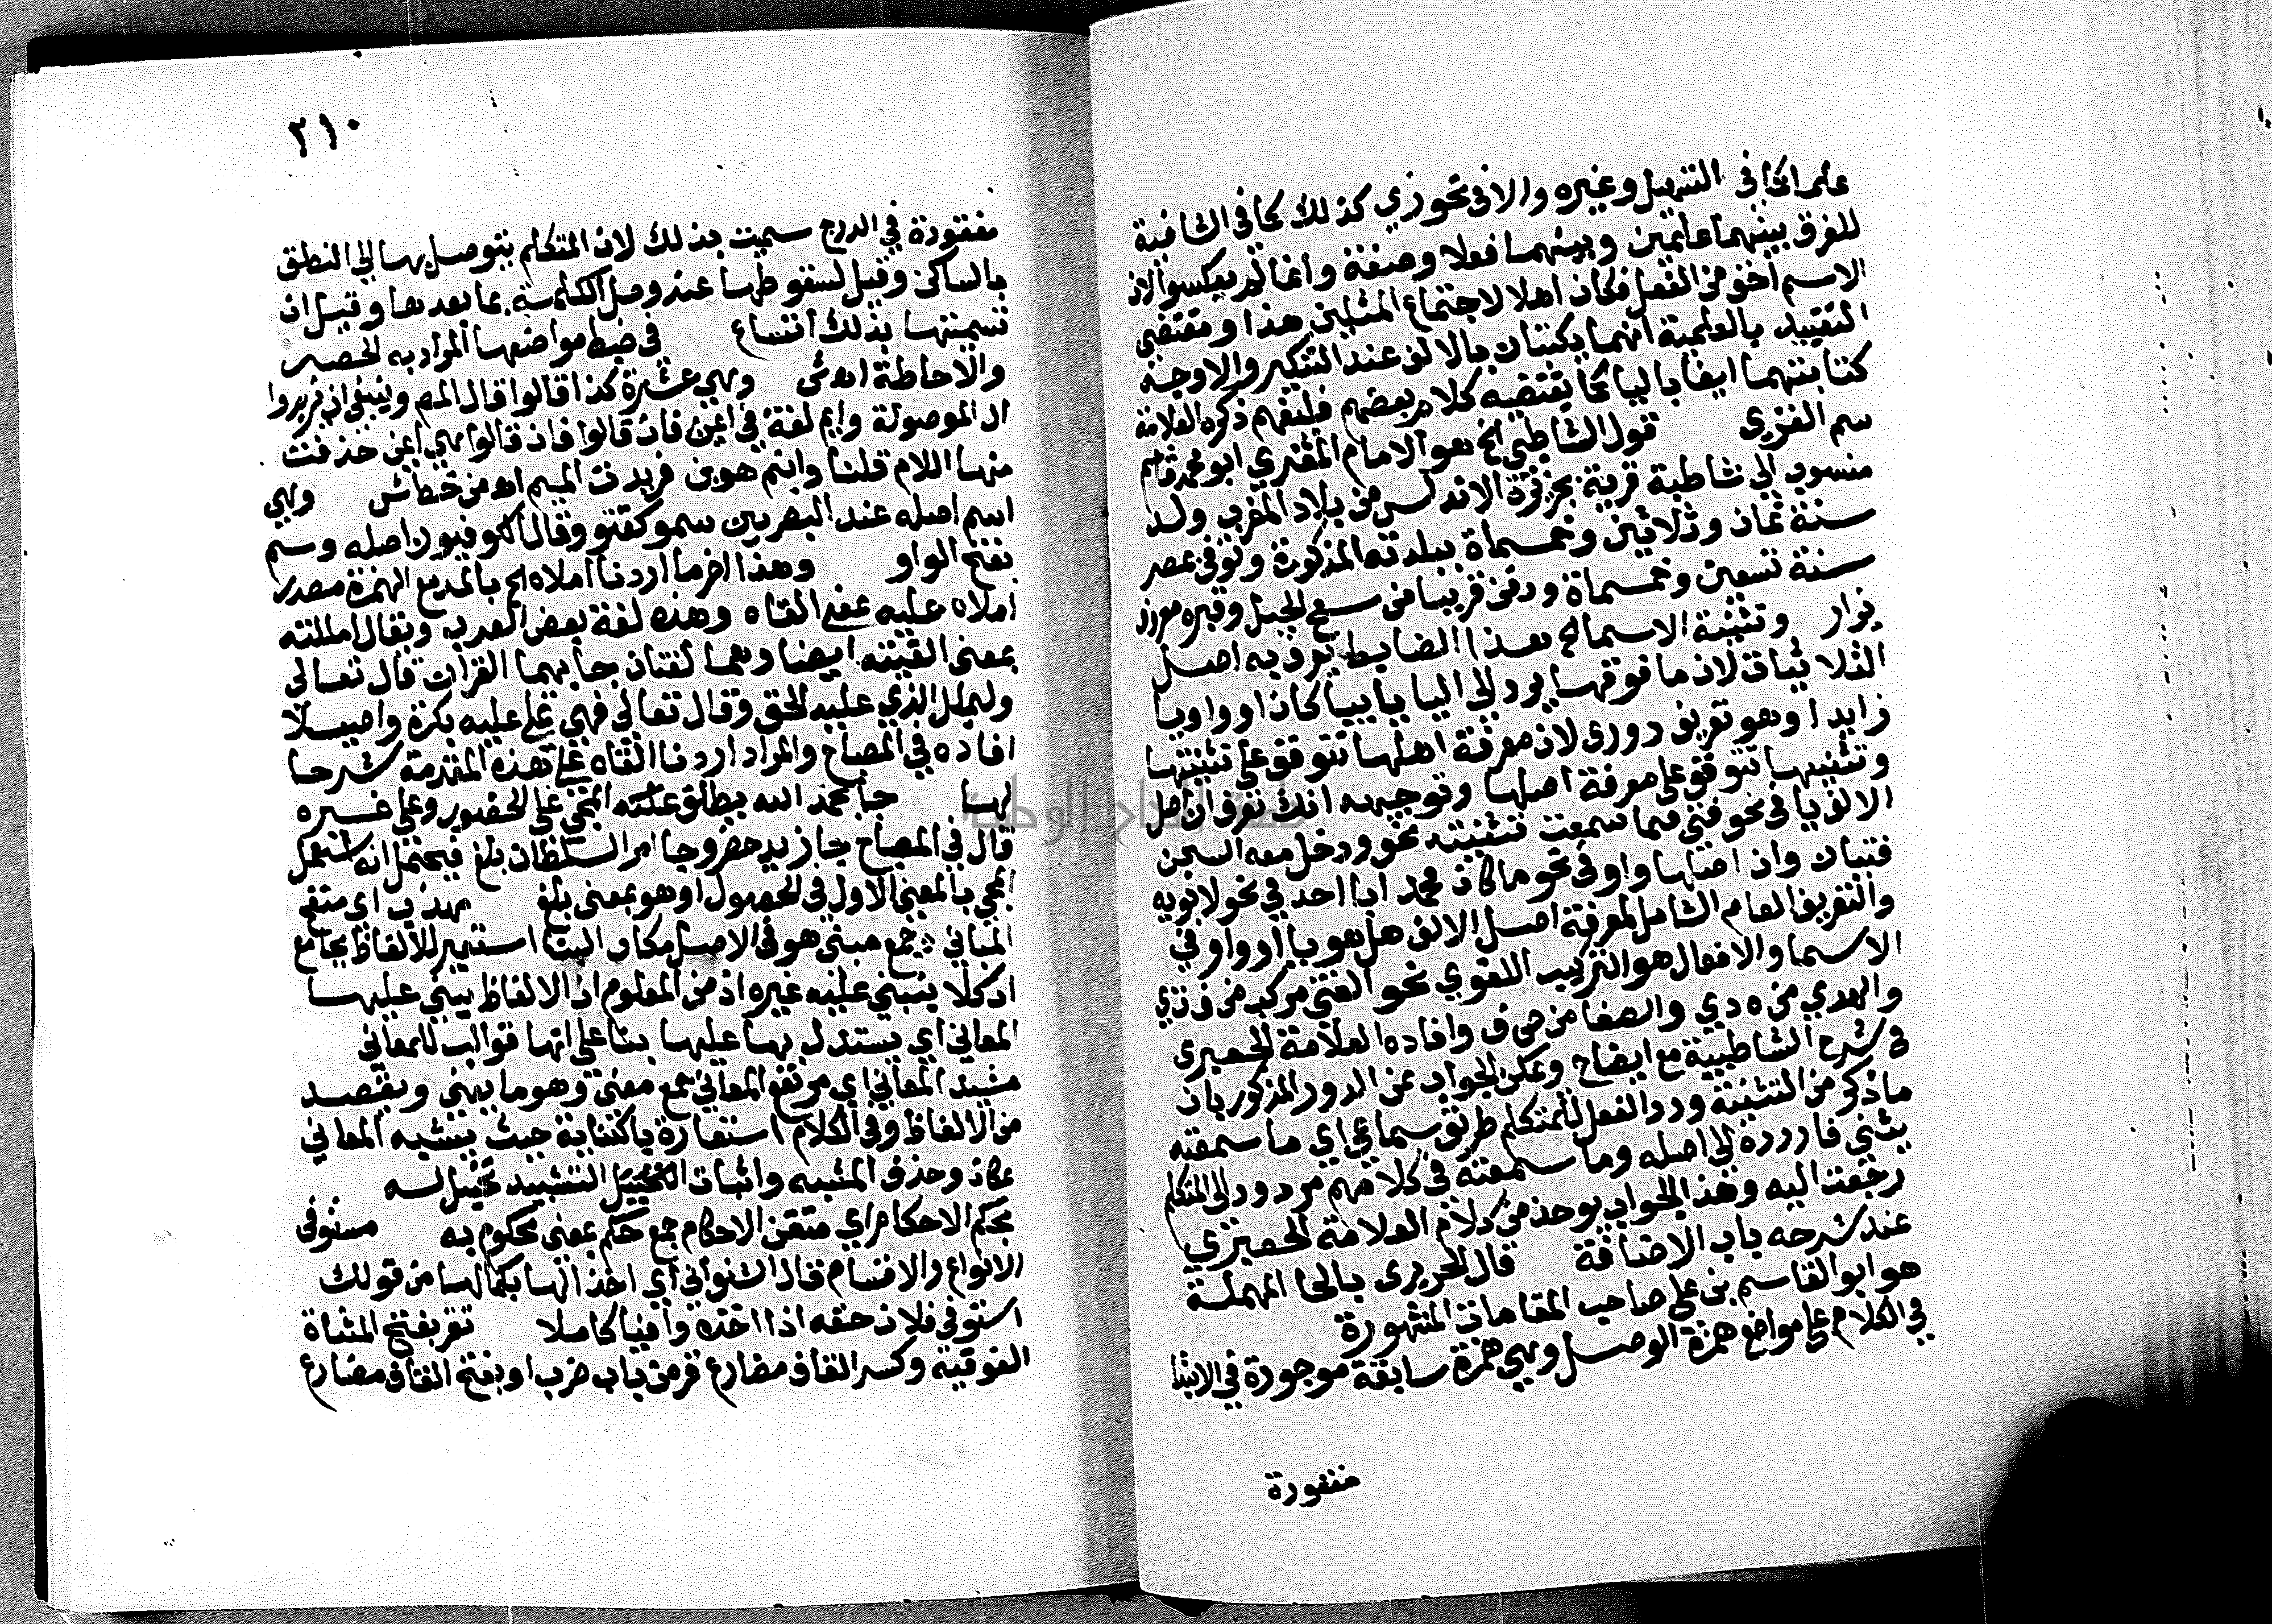 علما كما في التسهيل وغيره والا في نحو زي كذلك كما في الشافية
للفرق بينهما علمين وبينهما فعلا وصفة وانما لم يعكسوا لان
الاسم اخف من الفعل فكان اهلا لاجتماع المثلين هذا ومقتضى
التقييد بالعلمية انهما يكتبان بالالف عند التنكير والاوجه
كتابتهما ايضا باليا كما تقتضيه كلام بعضهم فليفهم ذكره العلامة
سم الغزي قول الشاطبي الخ هو الامام المقري ابو محمد قاسم
منسوب الي شاطبة قرية بجزيرة الاندلس من بلاد المغرب ولد
سنة ثمان وثلاثين وخمسماة ببلدته المذكورة وتوفى بمصر
سنة تسعين وخمسماة ودفن قريبا من سفح الجبل وقبره معروف
يزار وتثنية الاسما الخ هذا الضابط يعرف به اصل
الثلاثيات لان ما فوقها يرد الي اليا يايييا كان او واويا
زايدا وهو تعريف دوري لان معرفة اصلها تتوقف على تثنيتها
وتثنيتها تتوقف على معرفة اصلها وتوجيهه انك تعرف ان اصل
الالف يا في نحو فتى مما سمعت تثنيته نحو ودخل معه السجن
فتيان وان اصلها واو في نحو ما كان محمد ابا احد في نحو لابويه
والتعريف العام الشامل لمعرفة اصل الالف هل هو يا او واو في
الاسما والافعال هو التركيب اللغوي نحو الفتى مركب من ف ت ي
والهدي من ه د ي والصفا من ص ف و افاده العلامة الجعبري
في شرح الشاطبية مع ايضاح ويمكن الجواب عن الدور المذكور بان
ما ذكر من التثنية ورد الفعل للمتكلم طريق سماعي اي ما سمعته
يثنى فاردده الى اصله وما سمعته في كلامهم مردود الى المتكلم
رجعت اليه وهذا الجواب يوخذ من كلام العلامة الجعبري
عند شرحه باب الاضافة قال الحريري بالحا المهملة
هو ابو القاسم بن علي صاحب المقامات المشهورة
في الكلام على مواضع همزة الوصل وهي همزة سابقة موجودة في الابتدا
مفقودة
٢١٠
مفقودة في الدرج سميت بذلك لان المتكلم يتوصل بها الي النطق
بالساكن وقيل لسقوطها عند وصل الكلمة بما بعدها وقيل ان
تسميتها بذلك اتساع في ضبط مواضعها المراد به الحصر
والاحاطة اهش وهي عشرة كذا قالوا قال المص وينبغي ان يزيدوا
ال الموصولة وايم لغة في ايمن فان قالوا فان قالوا هي ايمن حذفت
منها اللام قلنا وابنم هو ابن فزيدت الميم اهـ من خط ش وهي
اسم اصله عند البصريين سمو كقنو وقال الكوفيون اصله وسم
بفتح الواو وهذا اخر ما اردنا املاه الخ بالمد مع الهمزة مصدر
املاه عليه بمعنى القاه وهذه لغة بعض العرب ويقال امللته
بمعنى القيته ايضا وهما لغتان جا بهما القران قال تعالى
وليملل الذي عليه الحق وقال تعالى فهي تملى عليه بكرة واصيلا
افاده في المصباح والمراد اردنا القاه على هذه المقدمة شرحا
لها جا بحمد الله يطلق على المجي على الحضور وعلى غيره
قال في المصباح جا زيد حضر وجا امر السلطان بلغ فيحتمل انه استعمل
المجي بالمعنى الاول في الحصول او هو بمعنى بلغ مهذب اي منقى
المباني جمع مبنى هو في الاصل مكان البنا استعير للالفاظ بجامع
ان كلا ينبني عليه غيره اذ من المعلوم ان الالفاظ يبنى عليها
المعاني اي يستدل بها عليها بنا على انها قوالب للمعاني
مشيد المعاني اي مرتفع المعاني جمع معنى وهو ما يعنى ويقصد
من الالفاظ وفي الكلام استعارة بالكناية حيث تشبيه المعاني
بمكان وحذف المشبه واثبات التخييل التشييد تخييل له
محكم الاحكام اي متقن الاحكام جمع حكم بمعنى محكوم به مستوفى
الانواع والاقسام قال الشنواني اي اخذ الها بكمالها من قولك
استوفى فلان حقه اذا اخذه وافيا كاملا تقر بفتح المثناة
الفوقية وكسر القاف مضارع قر من باب ضرب او بفتح القاف مضارع